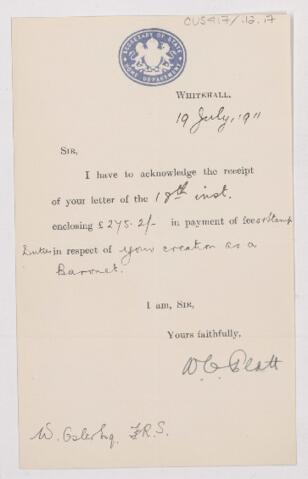 CUS417/.12.17
SECRETARY OF STATE
HOME DEPARTMENT
WHITEHALL.
19 July, 1911
SIR,
I have to acknowledge the receipt
of your letter of the 18th inst.
enclosing £275.2/- in payment of fees & Stamp
Duties in respect of your creation as a
Baronet.
I am, SIR,
Yours faithfully,
W. Osler Esq. F.R.S.